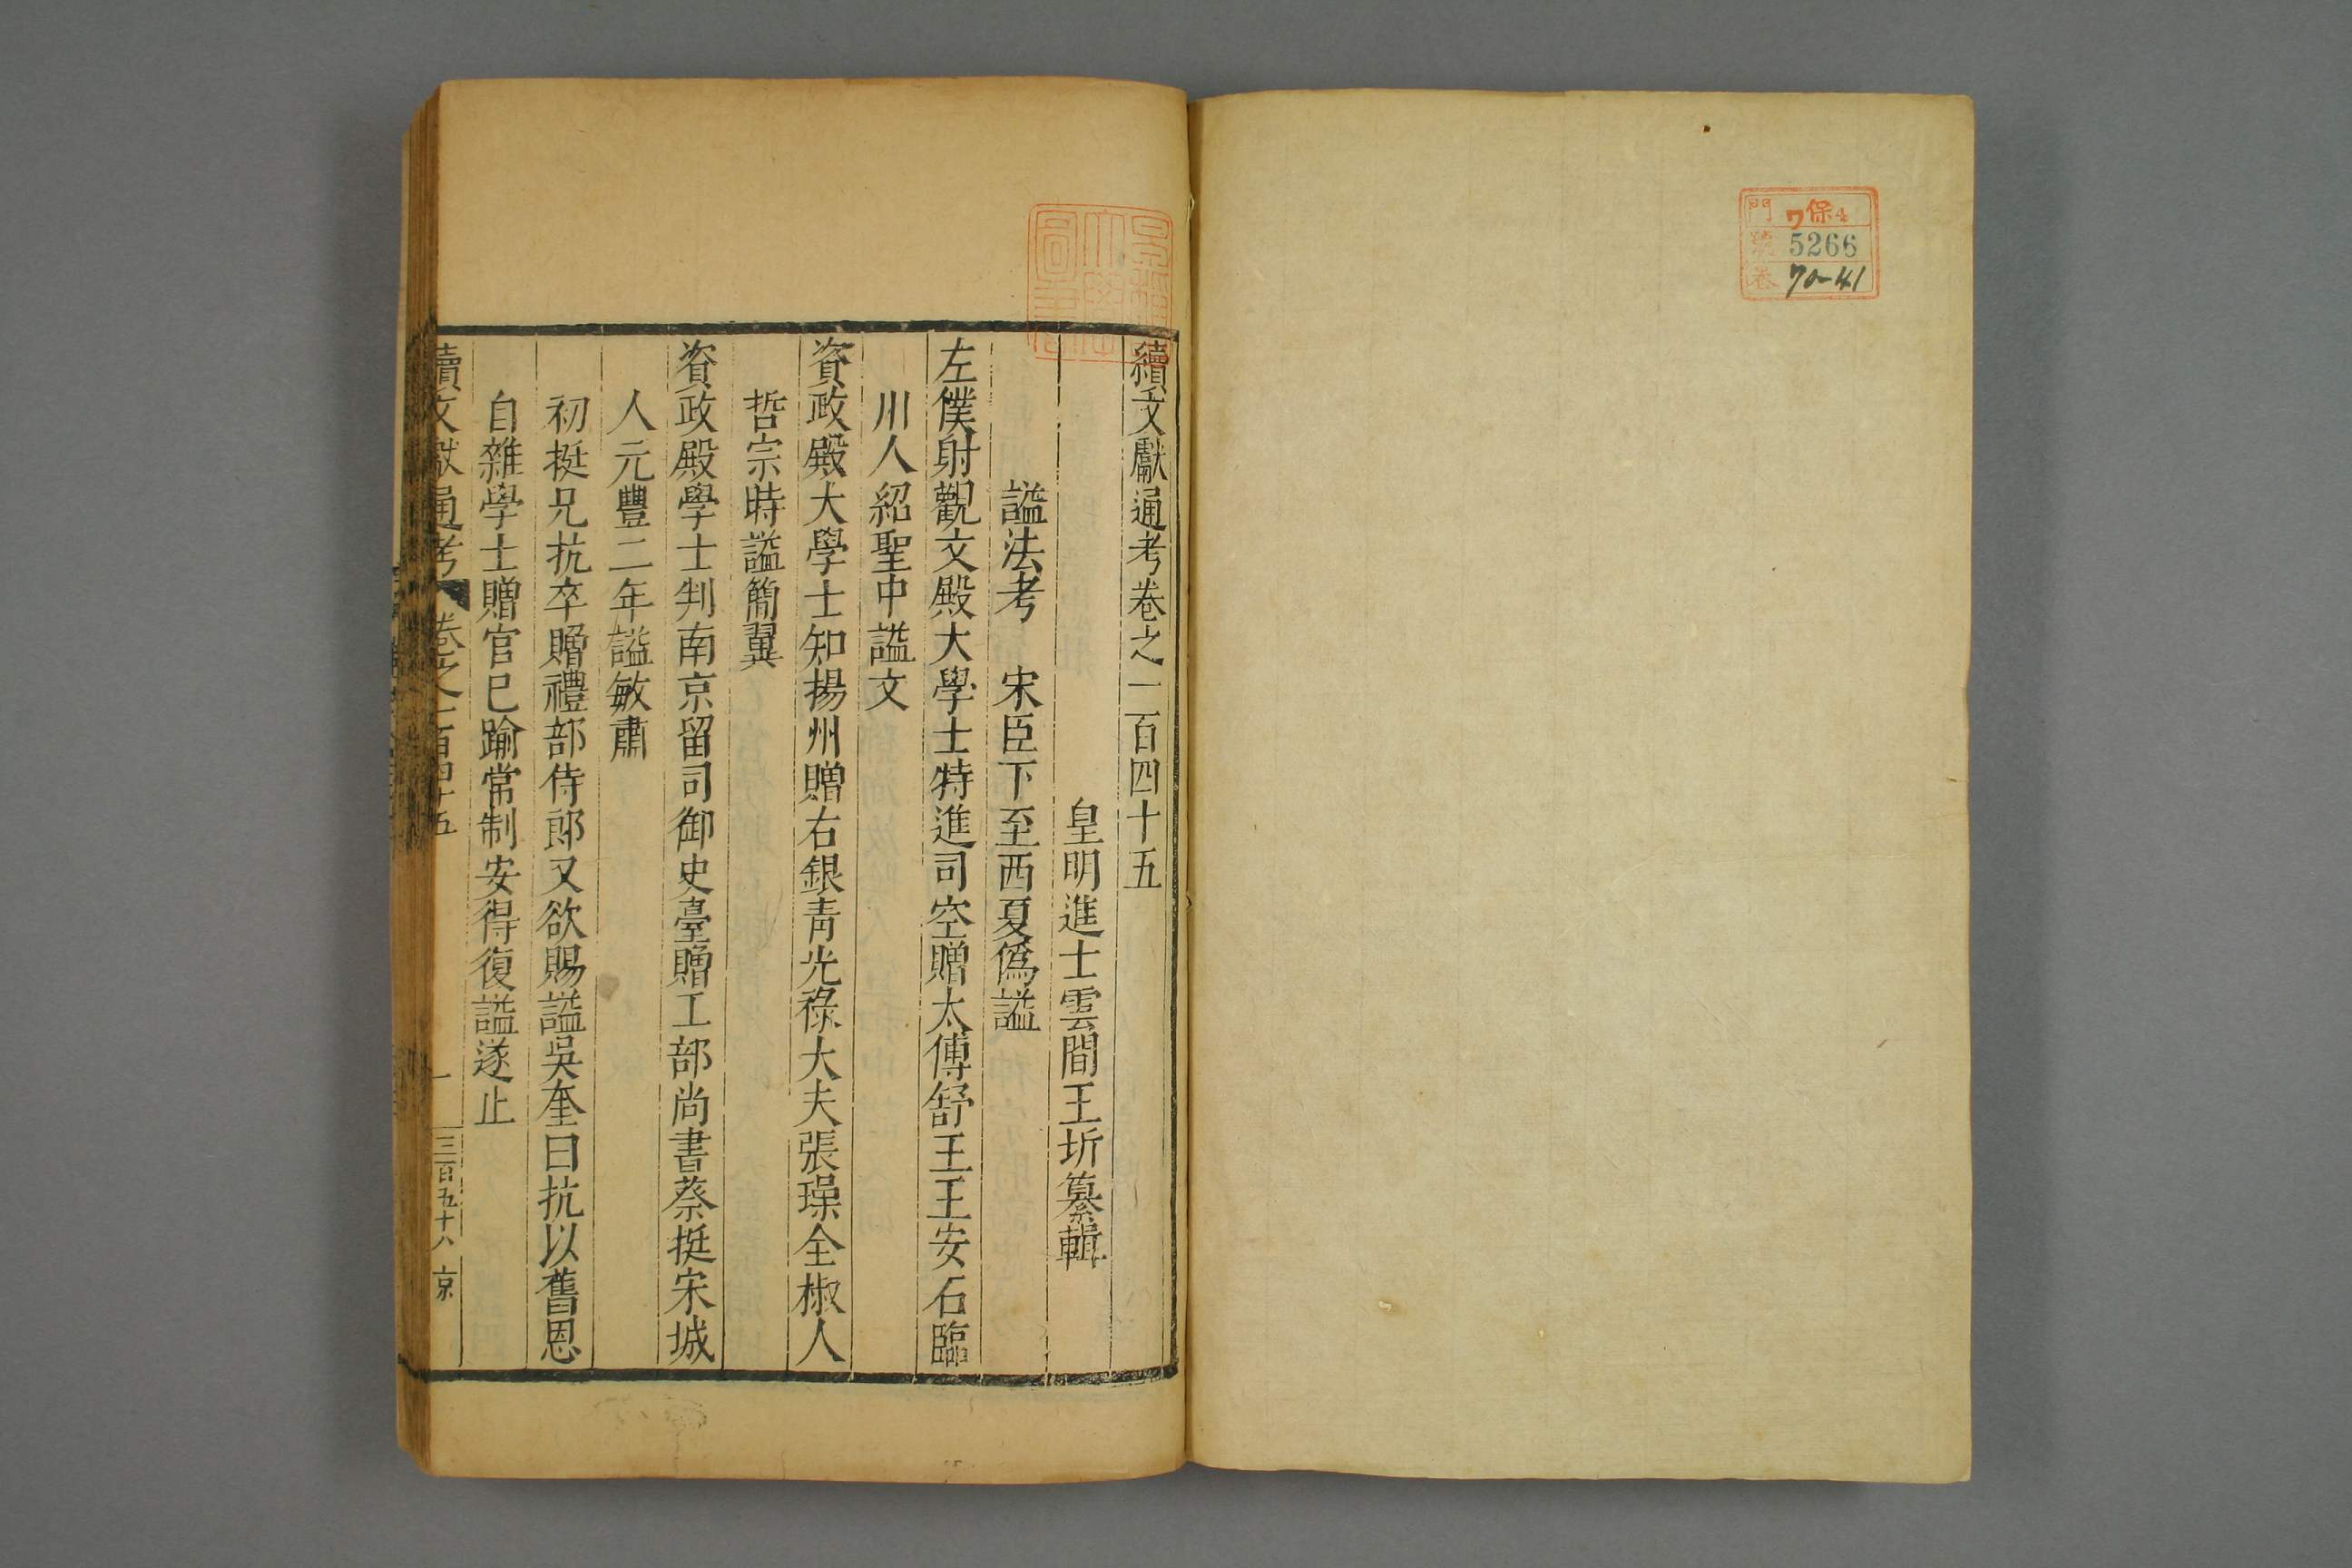 門 ワ保4
號 5266
卷 70-41
續文獻通考卷之一百四十五
皇明進士雲間王圻纂輯
諡法考 宋臣下至西夏僞諡
左僕射觀文殿大學士特進司空贈太傅舒王王安石臨
川人紹聖中諡文
資政殿大學士知揚州贈右銀青光祿大夫張璪全椒人
哲宗時諡簡翼
資政殿學士判南京留司御史臺贈工部尚書蔡挺宋城
人元豐二年諡敏肅
初挺兄抗卒贈禮部侍郎又欲賜諡吳奎曰抗以舊恩
自雜學士贈官已踰常制安得復諡遂止
續文獻通考 卷之一百四十五 一 三百五十八 京